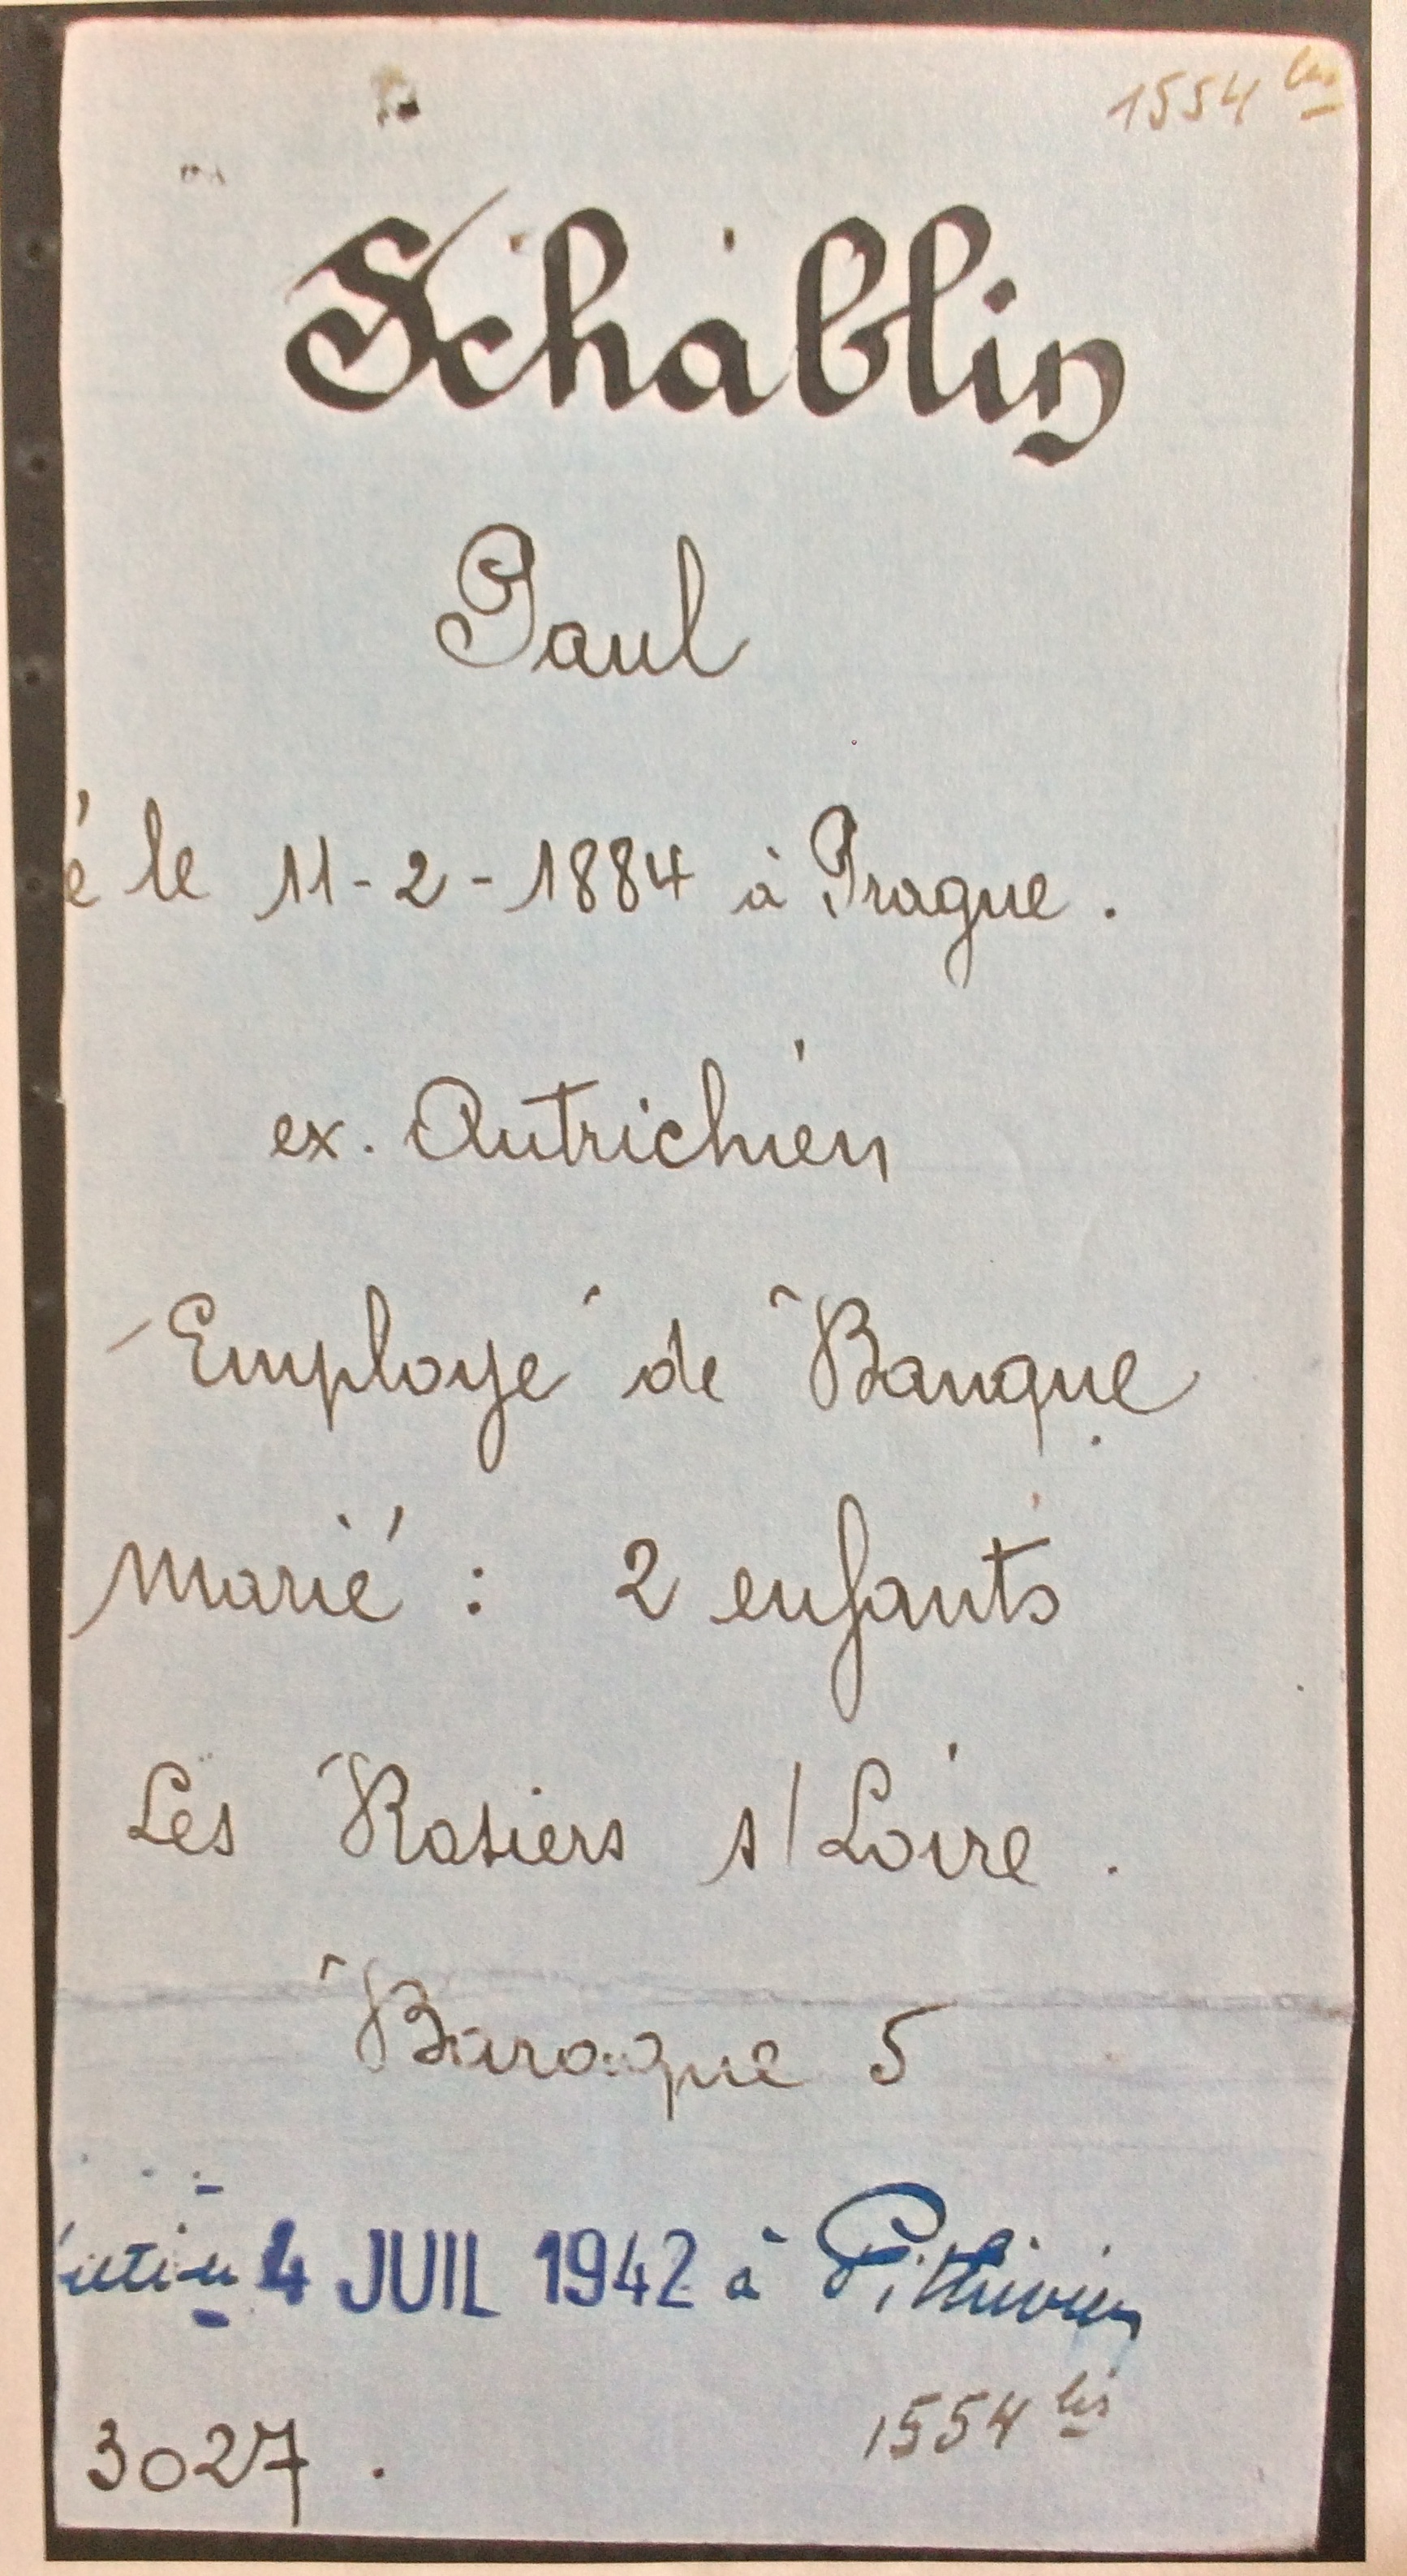 1554 bis
Schablin
Paul
é le 11-2-1884 à Prague.
ex. Autrichien
Employé de Banque
Marié : 2 enfants
Les Rosiers s/Loire.
Baraque 5
4 JUIL 1942 à Pithiviers
3027.
1554 bis